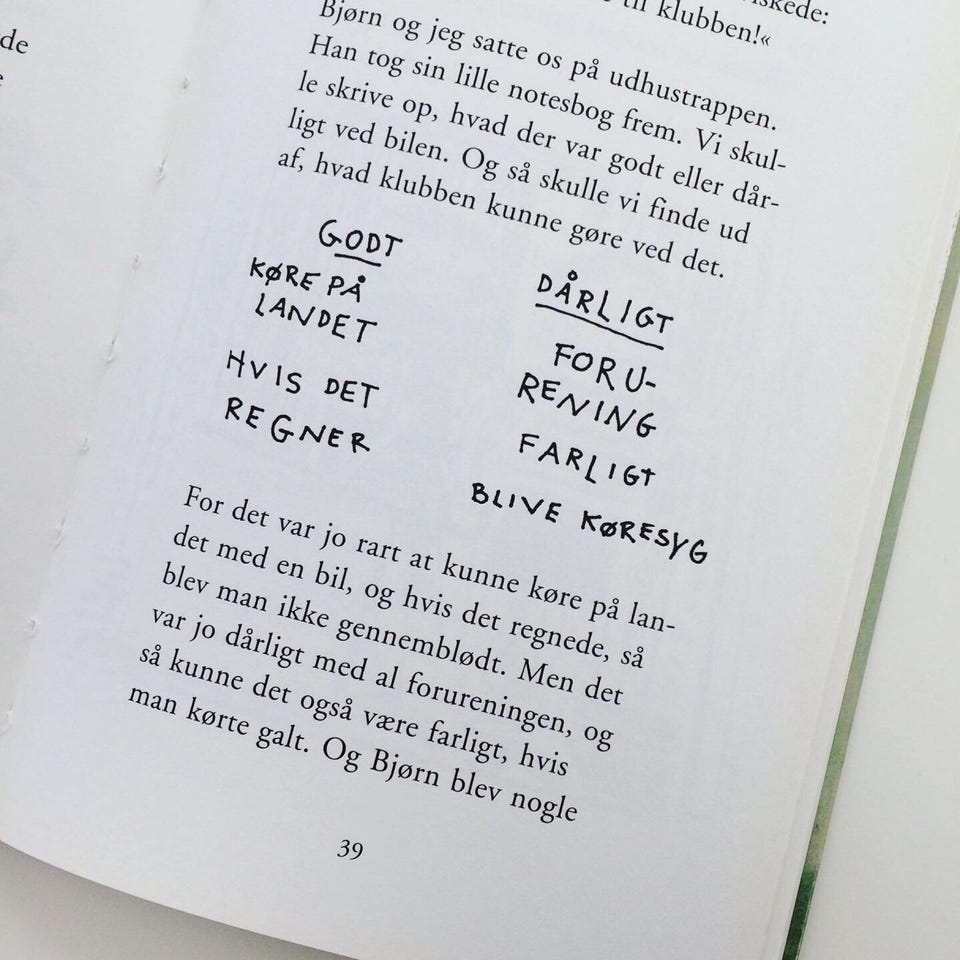 de
klubben!«
Bjørn og jeg satte os på udhustrappen.
Han tog sin lille notesbog frem. Vi skul-
le skrive op, hvad der var godt eller dår-
ligt ved bilen. Og så skulle vi finde ud
af, hvad klubben kunne gøre ved det.
GODT
KØRE PÅ
LANDET
HVIS DET
REGNER
DÅRLIGT
FORU-
RENING
FARLIGT
BLIVE KØRESYG
For det var jo rart at kunne køre på lan-
det med en bil, og hvis det regnede, så
blev man ikke gennemblødt. Men det
var jo dårligt med al forureningen, og
så kunne det også være farligt, hvis
man kørte galt. Og Bjørn blev nogle
39